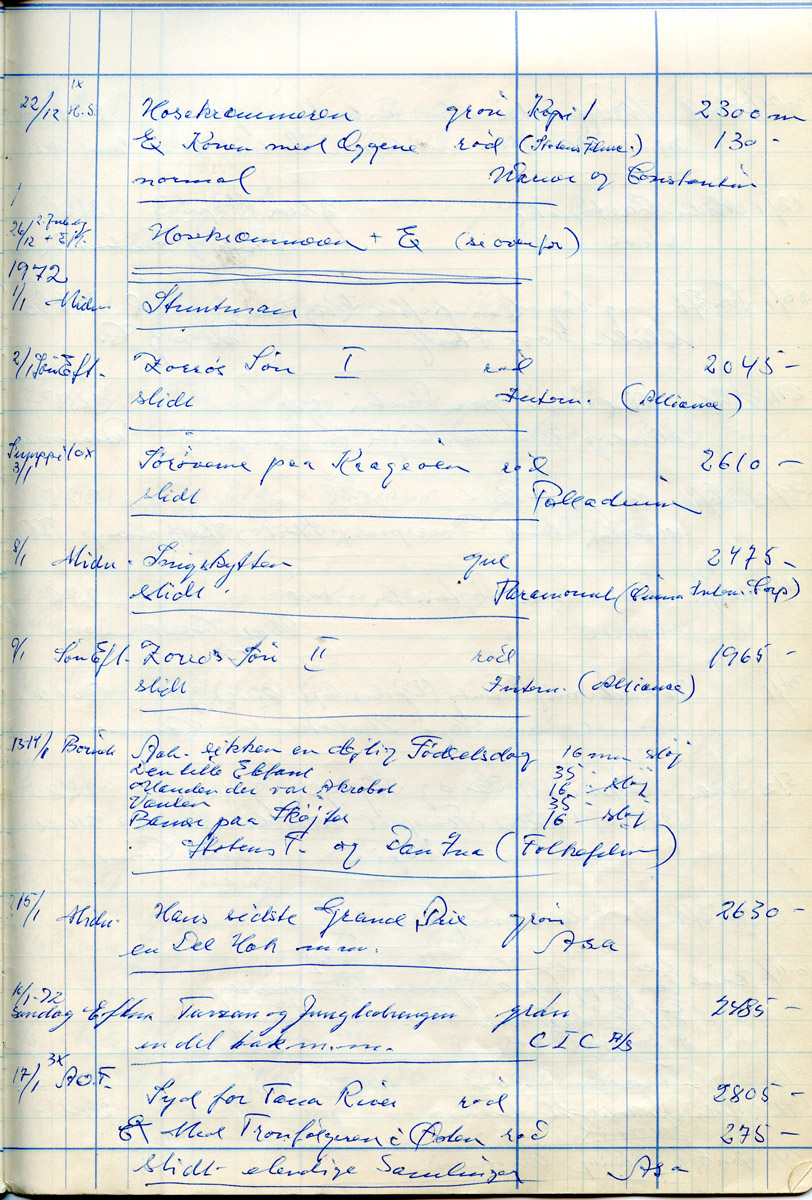 1x
22/12 H.S. Hosekræmmeren grøn Kopi 1 2300 m
Ex Konen med Æggene rød (Statens Filmc.) 130 -
normal Warner og Constantin
26/12 2. Juledag + Eft. Hosekræmmeren + Ex (se ovenfor)
1972
1/1 Midn. Stuntman
2/1 Søn Eft. Zorros Søn I rød 2045 -
slidt Intern. (Alliance)
3/1 Sørøverne paa Krageøen rød 2610 -
slidt Palladium
8/1 Midn. Snigskytten gul 2475 -
slidt. Paramount (Cinema Intern. Corp)
9/1 Søn Eft. Zorros Søn II rød 1965 -
slidt Intern. (Alliance)
13-14/1 Børneb Aah - sikken en dejlig Fødselsdag 16 mm støj
Den lille Elefant 35 -
Manden der var Akrobat 16 - støj
Vanten 35 -
Bamse paa Skøjter 16 - støj
Statens F. og Dan Ina (Folkefilm)
15/1 Midn. Hans sidste Grand Prix grøn 2630 -
en Del Hak m.m. Asa
16/1-72
Søndag Efterm Tarzan og Jungledrengen grøn 2485 -
en del hak m.m. C I C A/S
3x
17/1 A.O.F. Syd for Tana River rød 2805 -
Ex Med Tronfølgeren i Østen rød 275 -
slidt - elendige Samlinger Asa